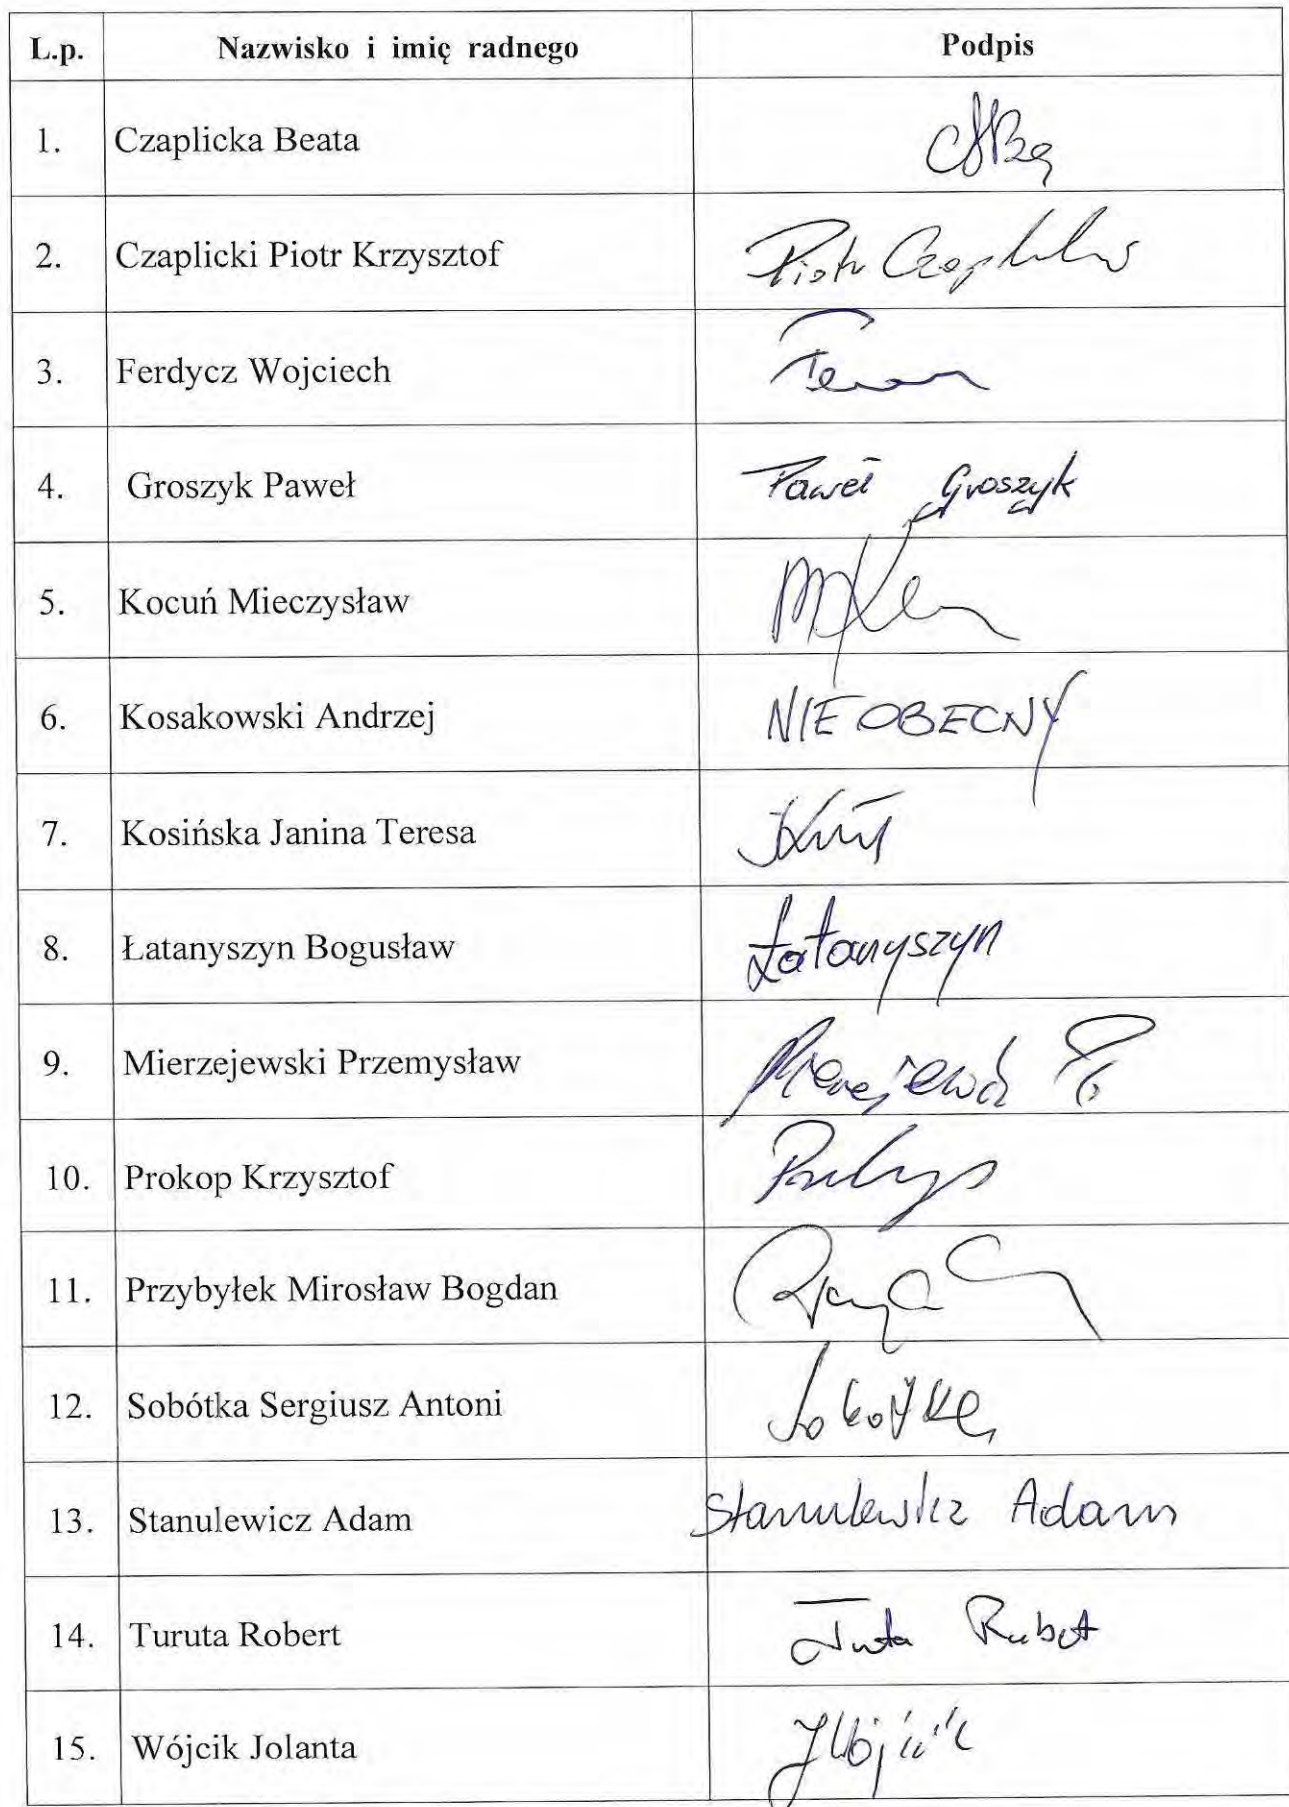 L.p. Nazwisko i imię radnego Podpis
1. Czaplicka Beata
2. Czaplicki Piotr Krzysztof Piotr
3. Ferdycz Wojciech
4. Groszyk Paweł Paweł Groszyk
5. Kocuń Mieczysław
6. Kosakowski Andrzej NIEOBECNY
7. Kosińska Janina Teresa
8. Łatanyszyn Bogusław Łatanyszyn
9. Mierzejewski Przemysław
10. Prokop Krzysztof
11. Przybyłek Mirosław Bogdan
12. Sobótka Sergiusz Antoni
13. Stanulewicz Adam Stanulewicz Adam
14. Turuta Robert
15. Wójcik Jolanta JWójcik